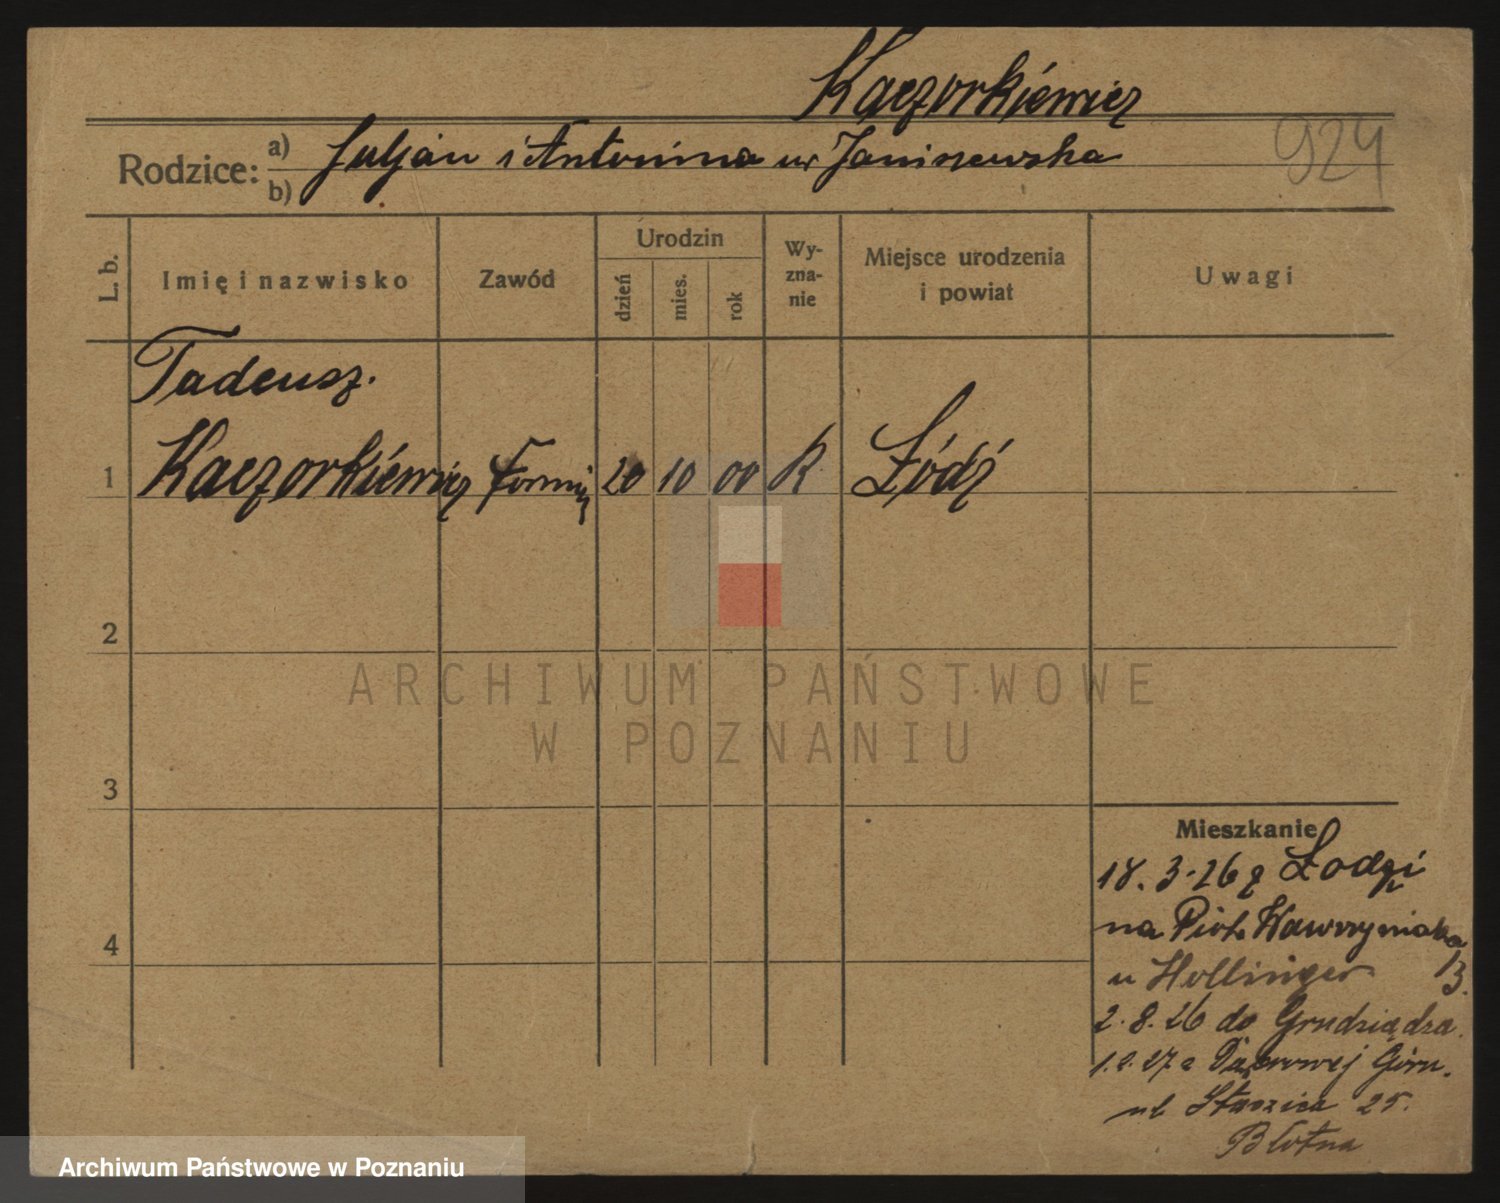 Kaczorkiewicz
924
Rodzice: a) Juljan i Antonina ur Janiszewska
b)
L. b.
Imię i nazwisko
Zawód
Urodzin
dzień
mies.
rok
Wy-
zna-
nie
Miejsce urodzenia
i powiat
Uwagi
Tadeusz.
1 Kaczorkiewicz 20 10 00 R Łódź
2
3
4
Mieszkanie
18.3.26 z Łodzi
na Piotr Wawrzyniaka
u Hollinger 13.
2.8.26 do Grudziądza.
1.2.27 z Górn.
ul Staszica 25.
Błotna
ARCHIWUM PAŃSTWOWE
W POZNANIU
Archiwum Państwowe w Poznaniu